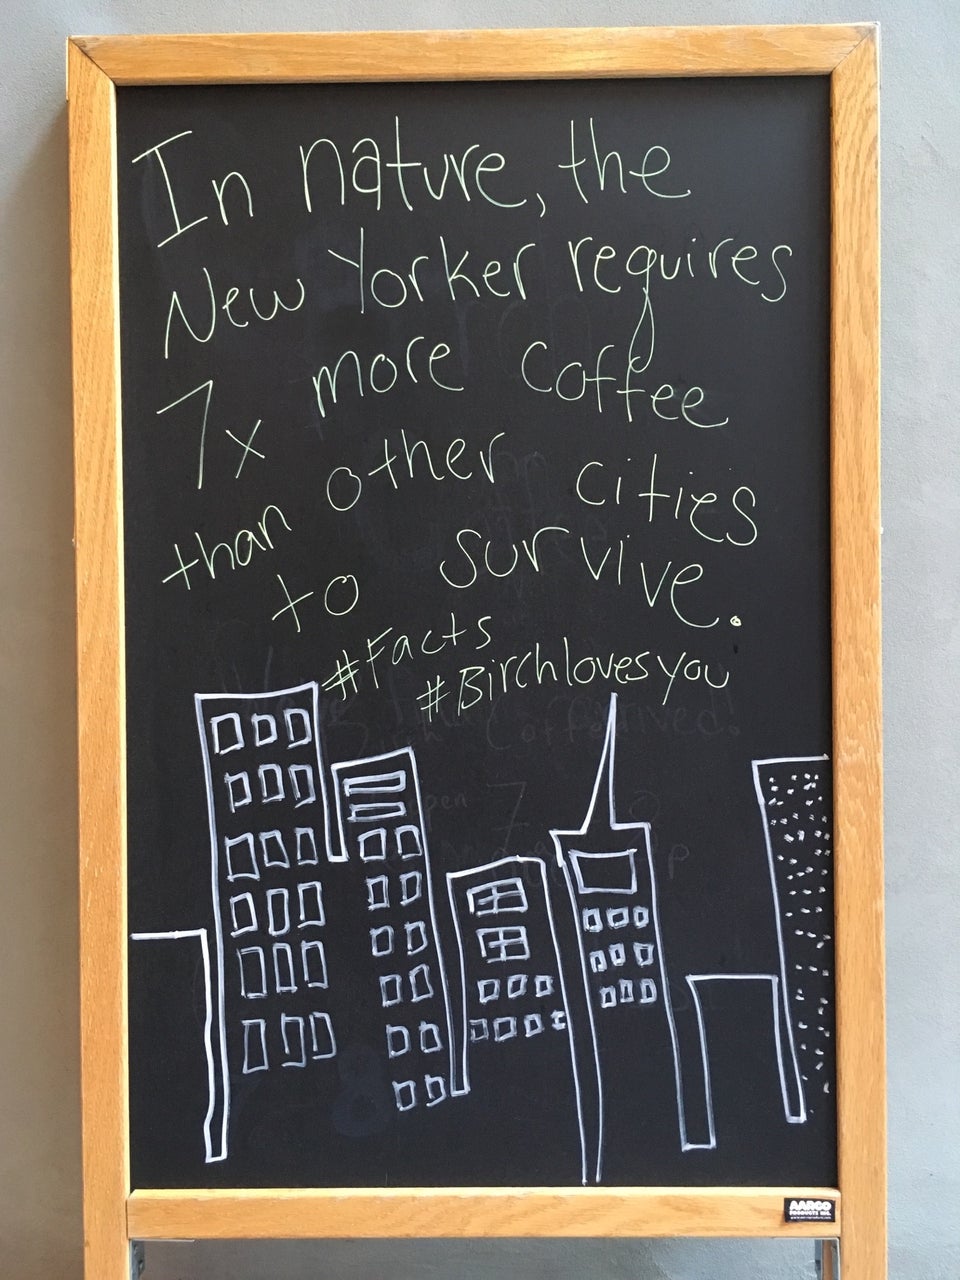 In nature, the
New Yorker requires
7x more coffee
than other cities
to survive.
#Facts
#Birchlovesyou
AARCO
PRODUCTS INC.